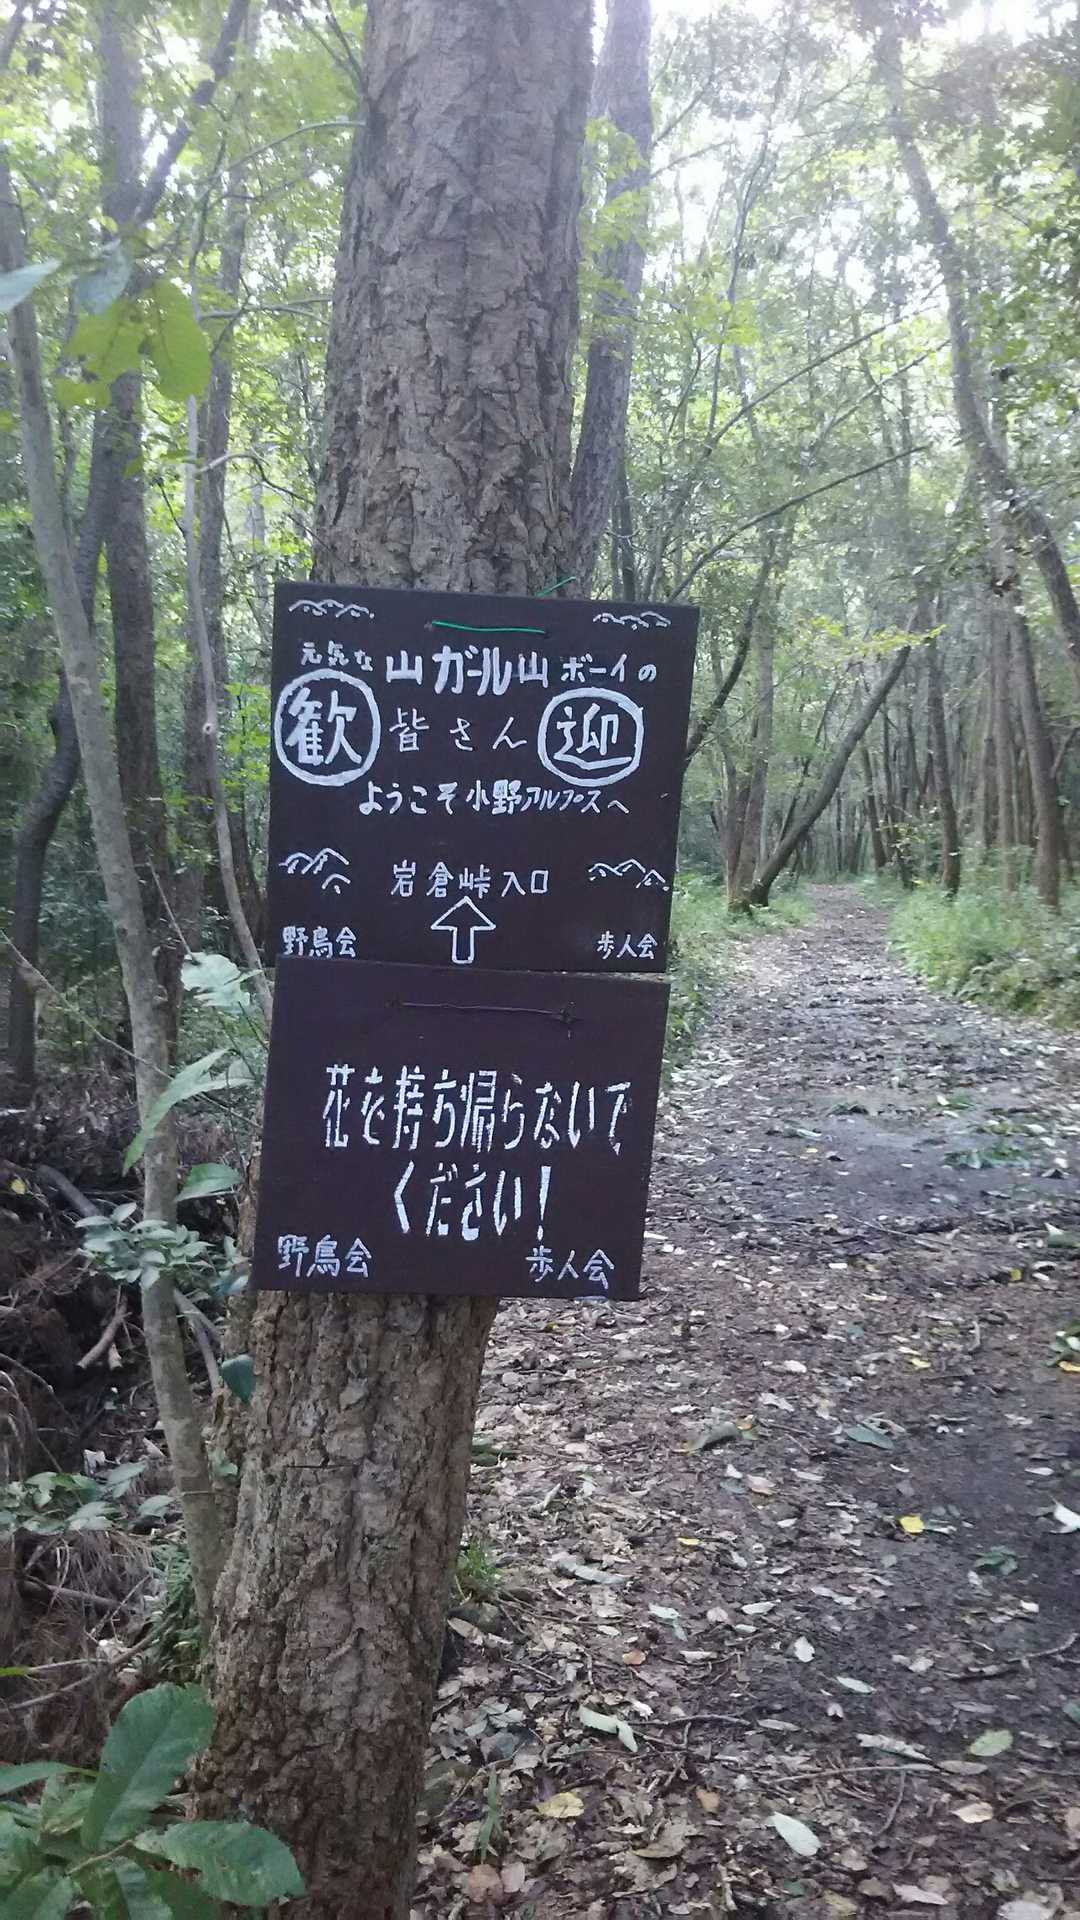 元気な山ガール山ボーイの
歓 皆さん 迎
ようこそ小野アルプスへ
岩倉峠入口
野鳥会 歩人会
花を持ち帰らないで
ください!
野鳥会 歩人会